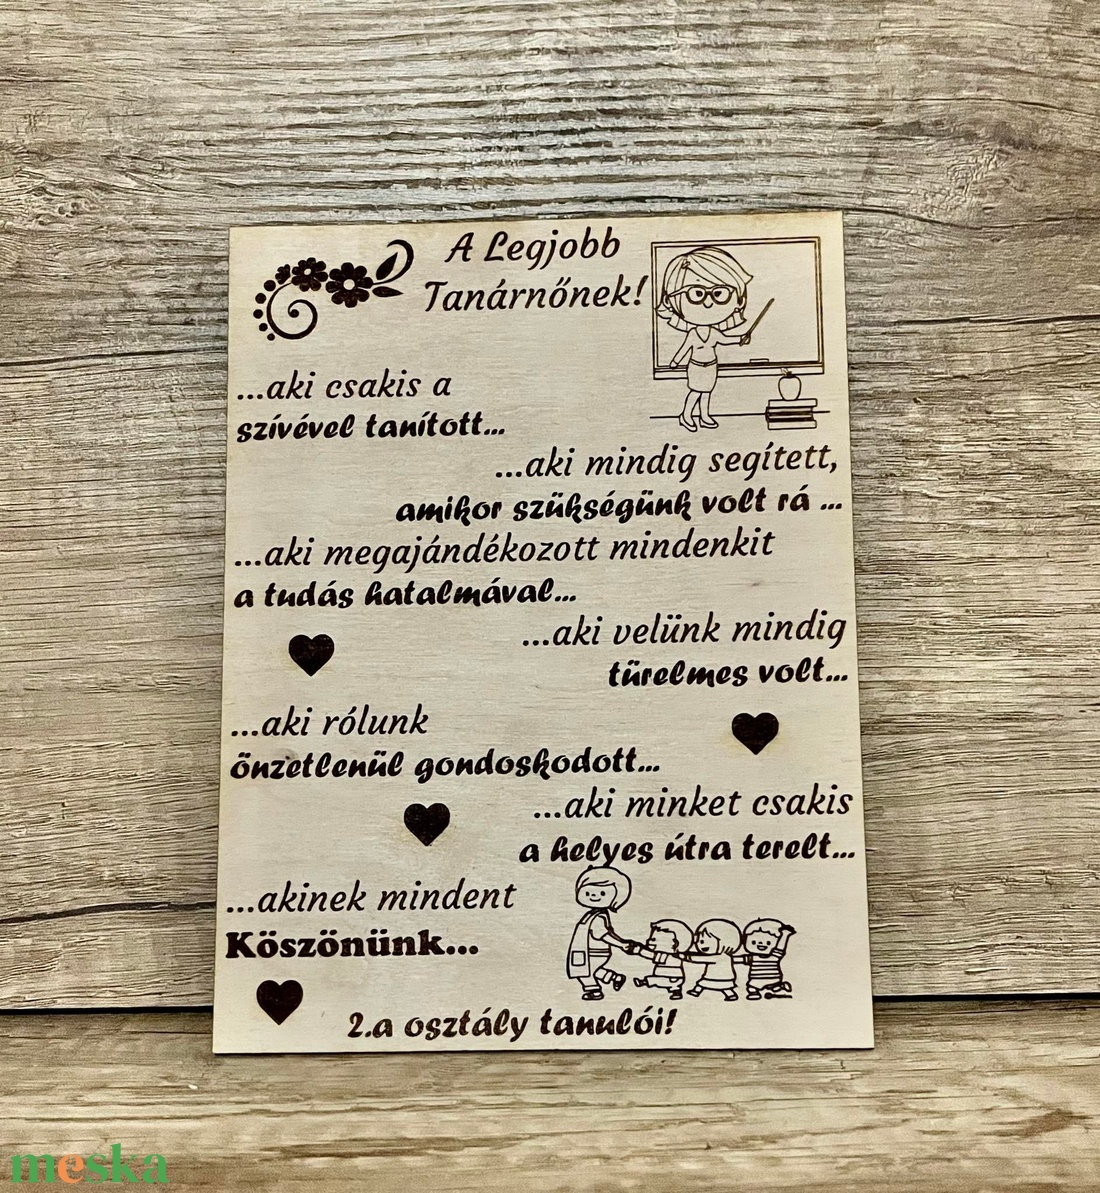 A Legjobb
Tanárnőnek!
...aki csakis a
szívével tanított...
...aki mindig segített,
amikor szükségünk volt rá ...
...aki megajándékozott mindenkit
a tudás hatalmával...
...aki velünk mindig
türelmes volt...
...aki rólunk
önzetlenül gondoskodott...
...aki minket csakis
a helyes útra terelt...
...akinek mindent
Köszönünk...
2.a osztály tanulói!
meska